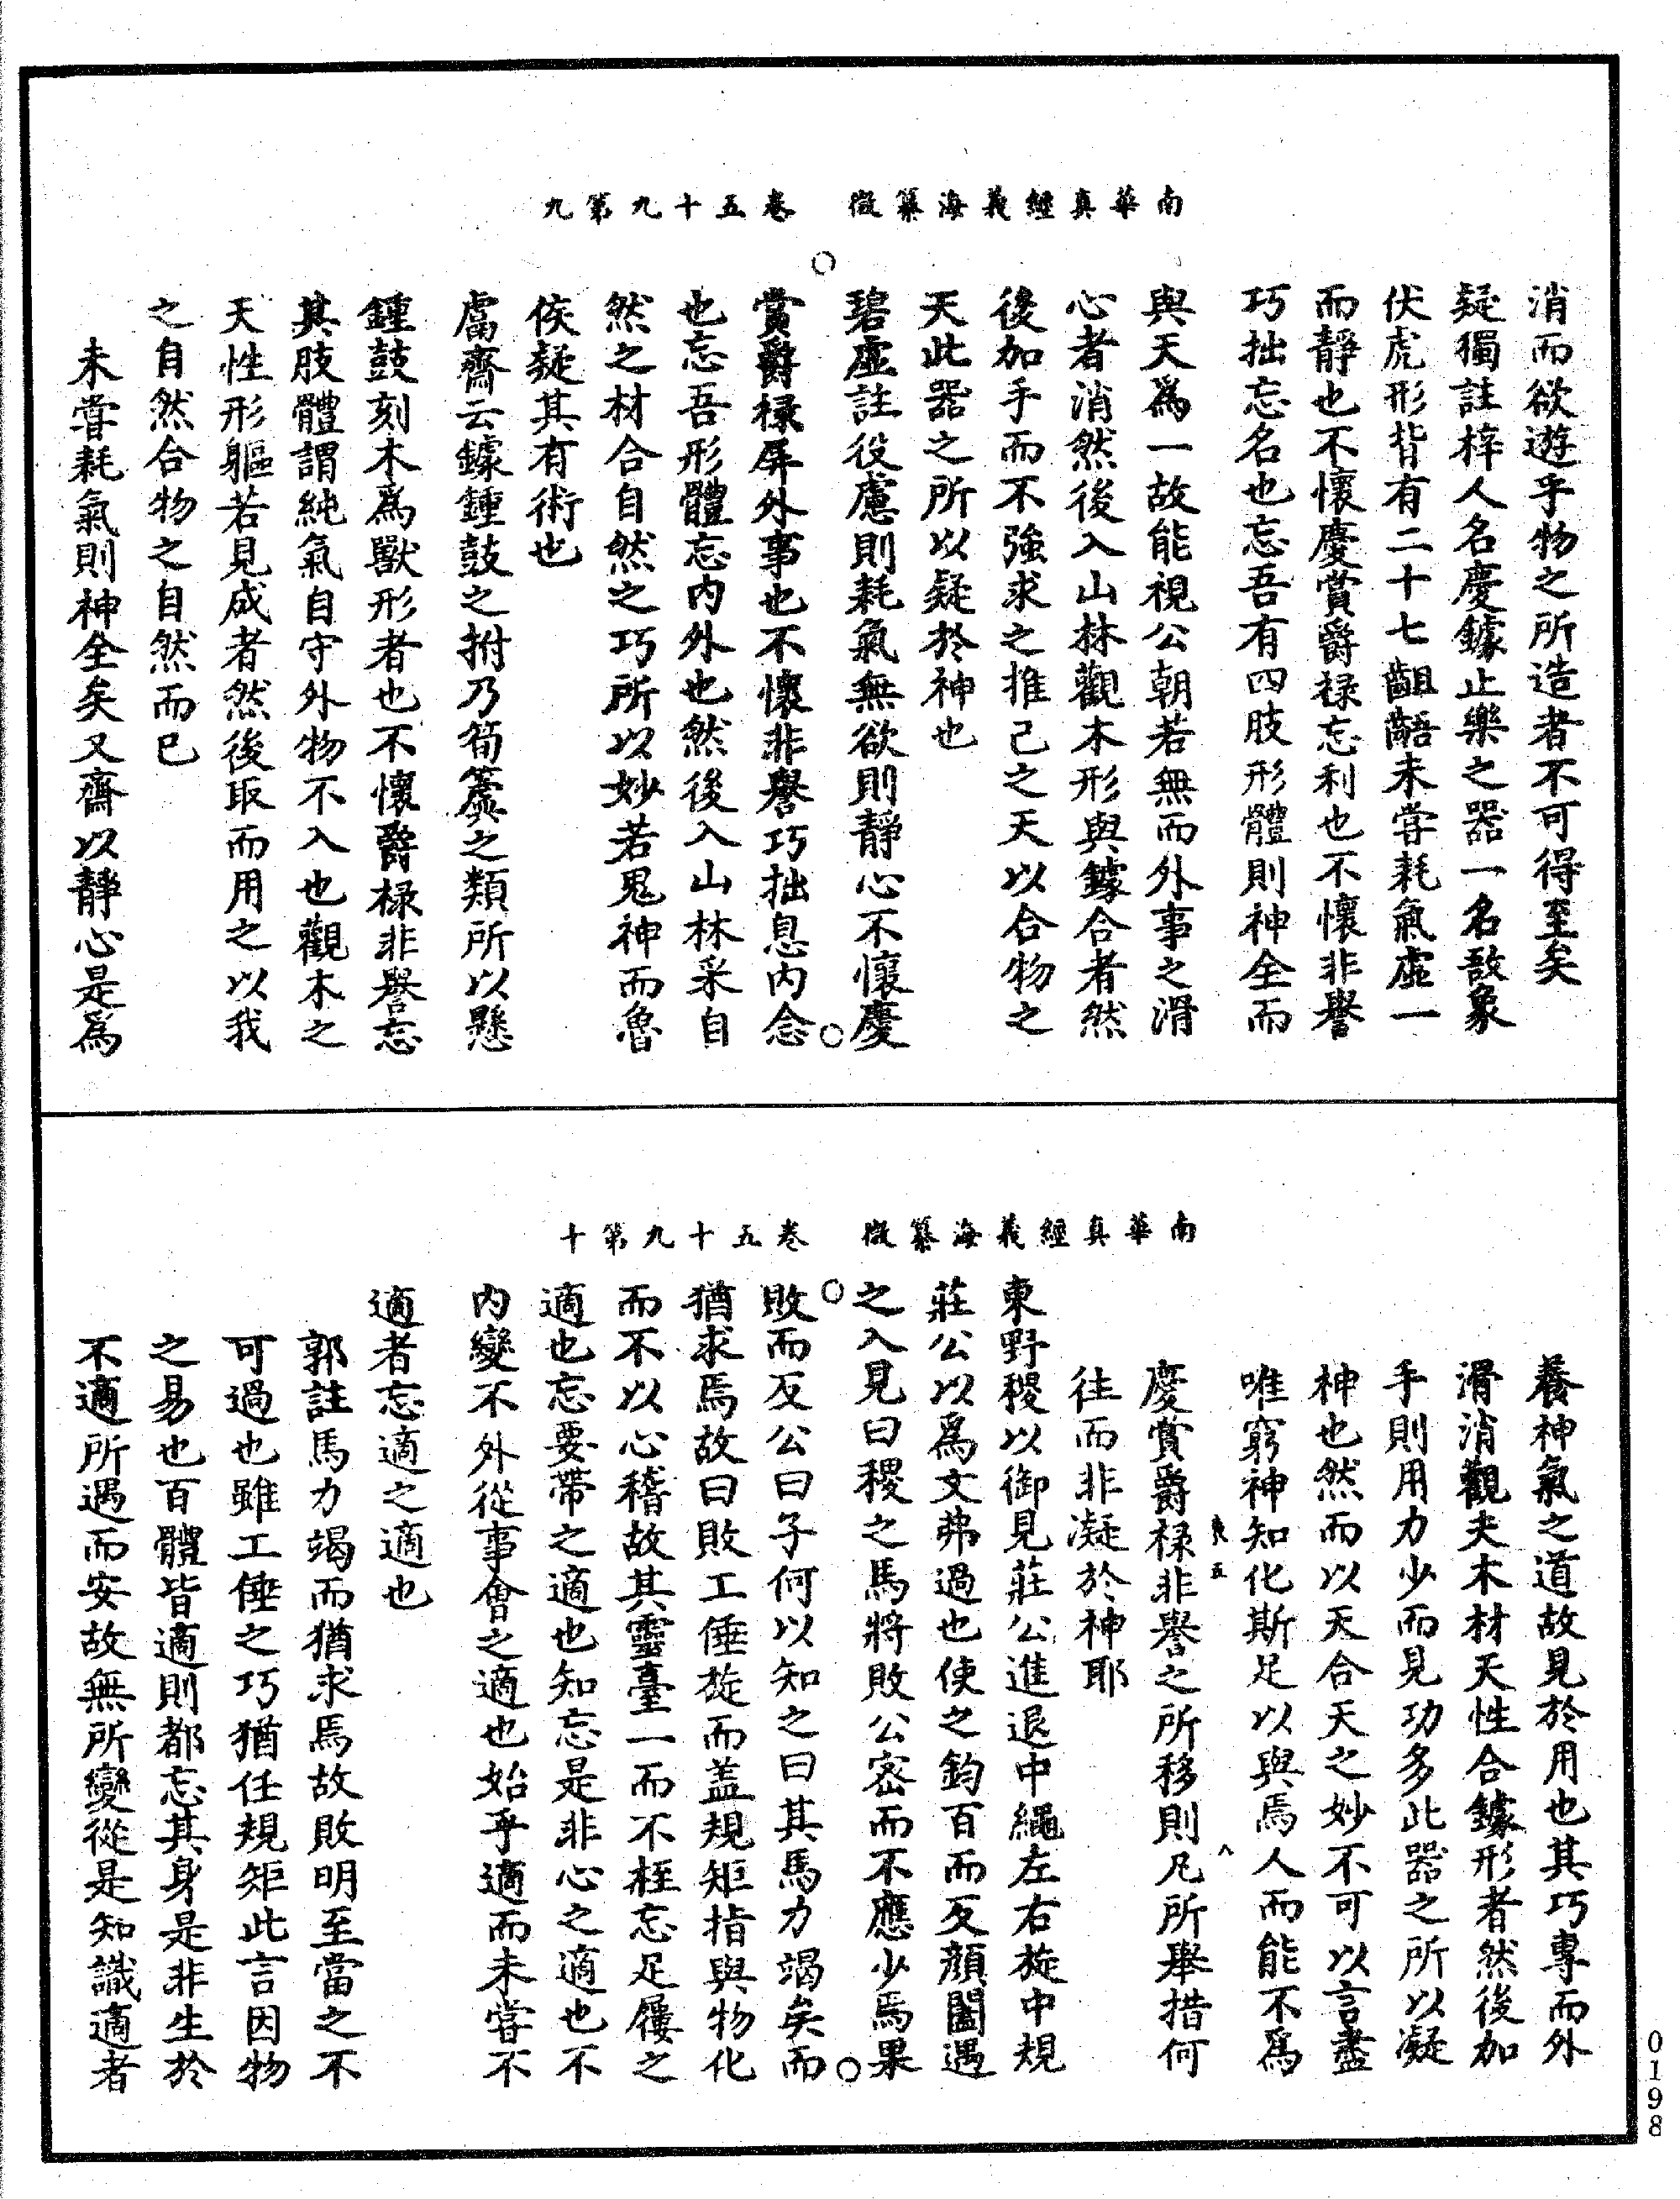 南華真經義海纂微　卷五十九第九
消而欲遊乎物之所造者不可得至矣
疑獨註梓人名慶鐻止樂之器一名敔象
伏虎形背有二十七齟齬未嘗耗氣虛一
而靜也不懷慶賞爵祿忘利也不懷非譽
巧拙忘名也忘吾有四肢形體則神全而
與天爲一故能視公朝若無而外事之滑
心者消然後入山林觀木形與鐻合者然
後加手而不強求之推己之天以合物之
天此器之所以疑於神也
碧虛註役慮則耗氣無欲則靜心不懷慶
賞爵祿屏外事也不懷非譽巧拙息内念
也忘吾形體忘内外也然後入山林采自
然之材合自然之巧所以妙若鬼神而魯
侯疑其有術也
鬳齋云鐻鍾鼓之柎乃筍簴之類所以懸
鍾鼓刻木爲獸形者也不懷爵祿非譽忘
其肢體謂純氣自守外物不入也觀木之
天性形軀若見成者然後取而用之以我
之自然合物之自然而已
未嘗耗氣則神全矣又齋以靜心是爲
南華真經義海纂微　卷五十九第十
養神氣之道故見於用也其巧專而外
滑消觀夫木材天性合鐻形者然後加
手則用力少而見功多此器之所以凝
神也然而以天合天之妙不可以言盡
唯窮神知化斯足以與焉人而能不爲
慶賞爵祿非譽之所移則凡所舉措何
往而非凝於神耶
東野稷以御見莊公進退中繩左右旋中規
莊公以爲文弗過也使之鈎百而反顏闔遇
之入見曰稷之馬將敗公密而不應少焉果
敗而反公曰子何以知之曰其馬力竭矣而
猶求焉故曰敗工倕旋而盖規矩指與物化
而不以心稽故其靈臺一而不桎忘足屨之
適也忘要帶之適也知忘是非心之適也不
内變不外從事會之適也始乎適而未嘗不
適者忘適之適也
郭註馬力竭而猶求焉故敗明至當之不
可過也雖工倕之巧猶任規矩此言因物
之易也百體皆適則都忘其身是非生於
不適所遇而安故無所變從是知識適者
0198